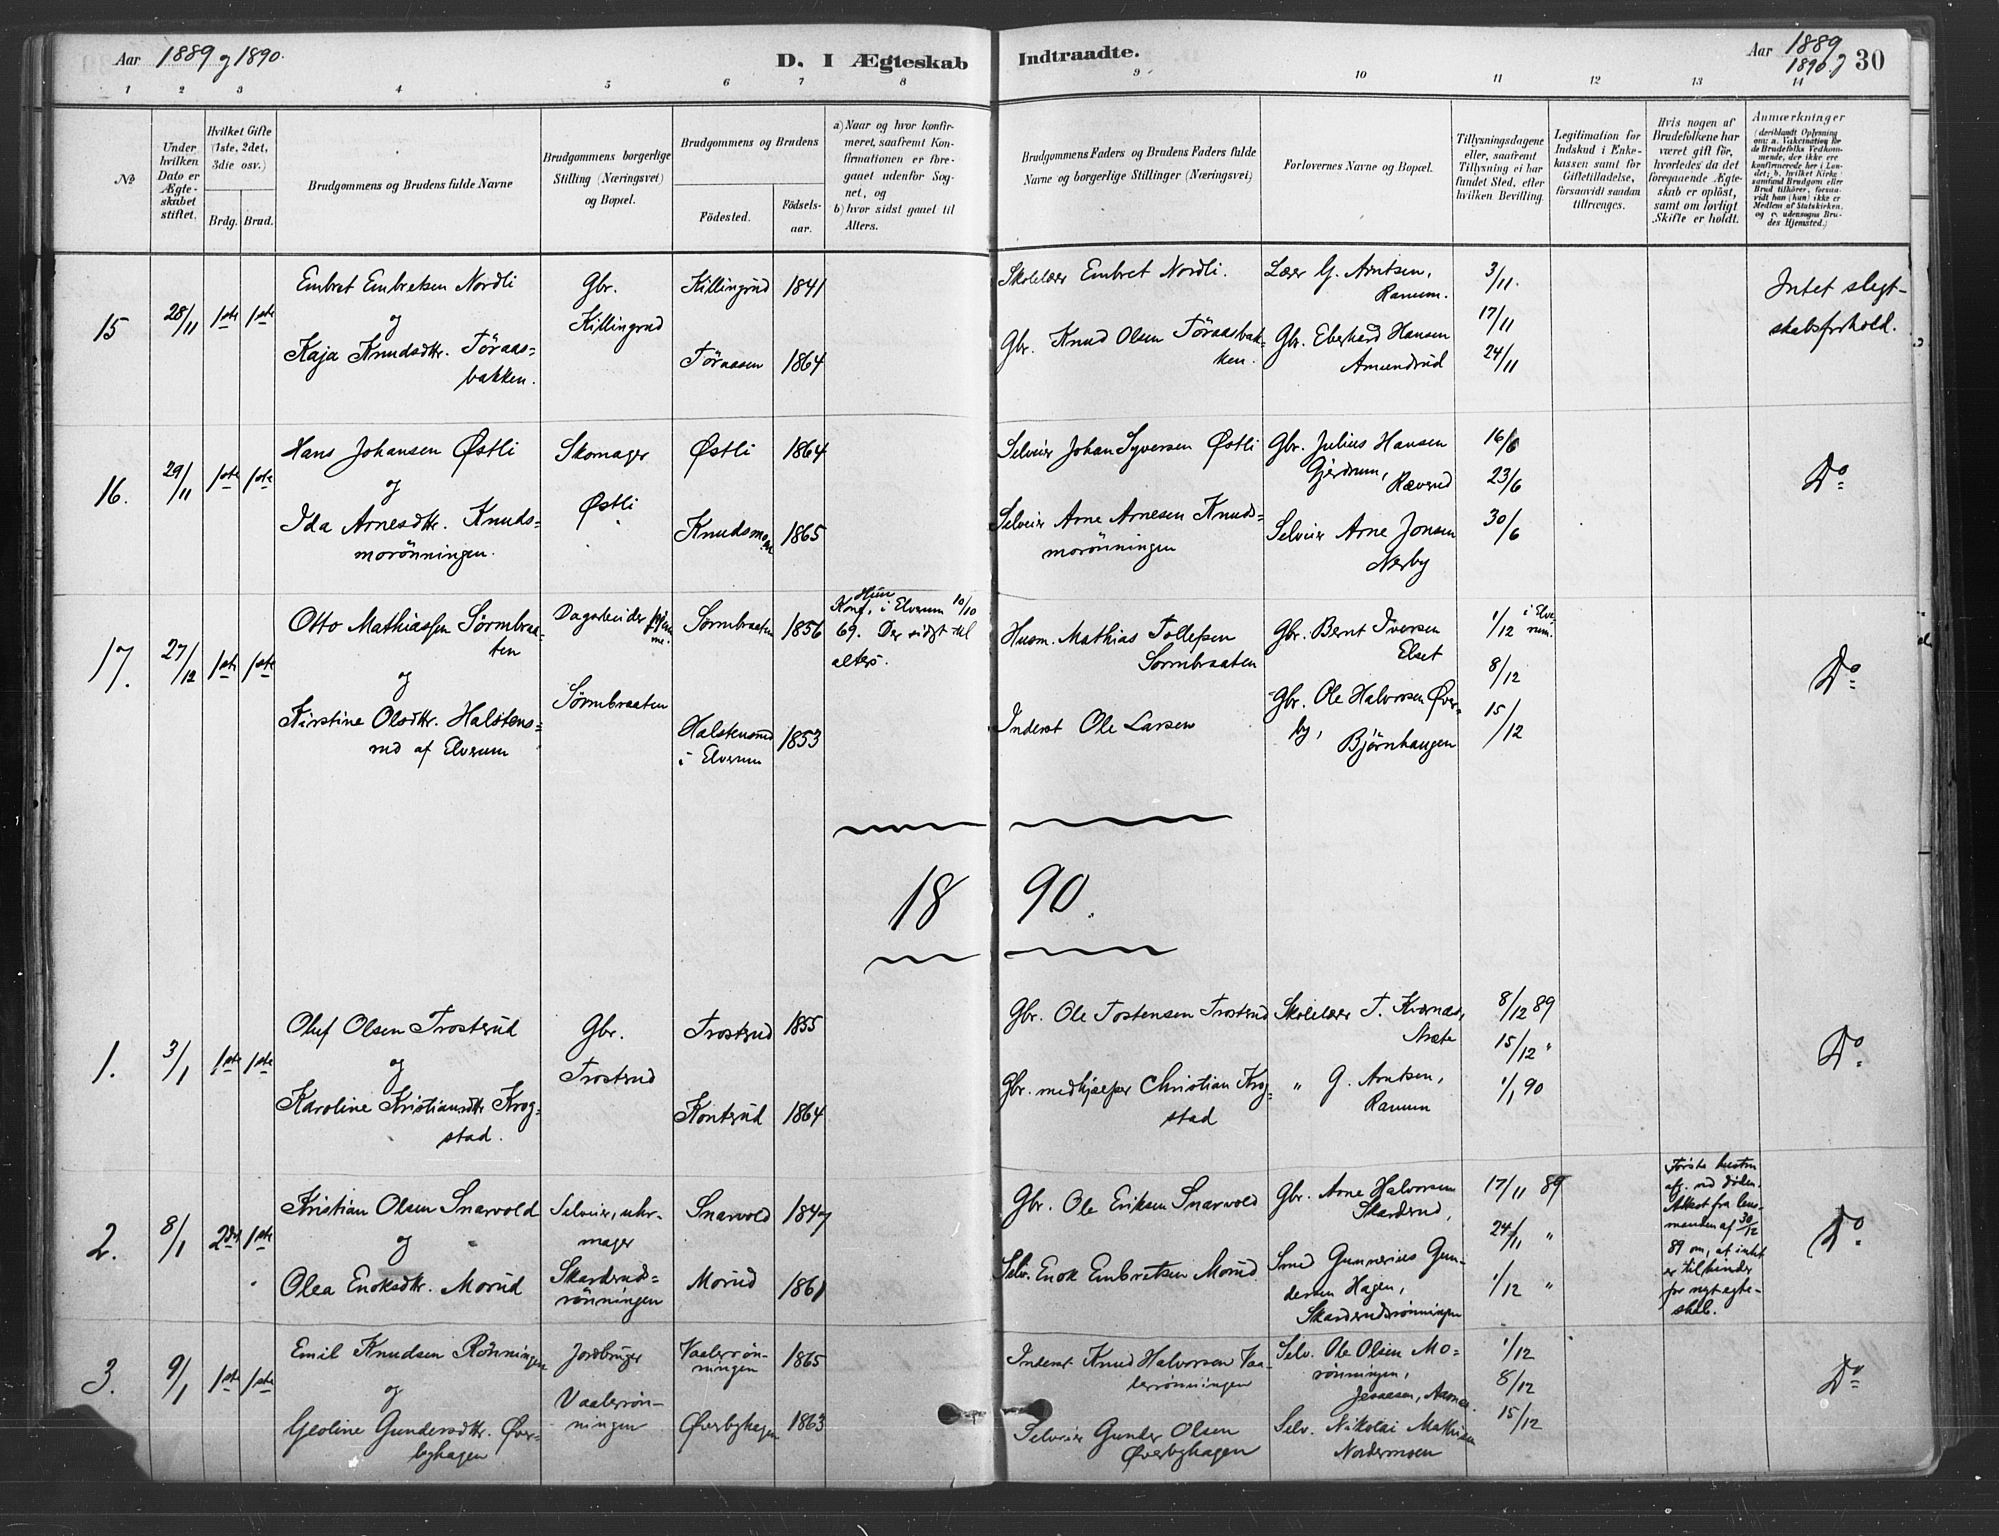 Aar 1889 og 1890.
D. I Ægteskab Indtraadte.
Aar 1889 og 1890. 30
1 2 3 4 5 6 7 8 9 10 11 12 13 14
№
Under hvilken Dato er Ægteskabet stiftet.
Hvilket Gifte (1ste, 2det, 3die osv.)
Brdg. Brud.
Brudgommens og Brudens fulde Navne
Brudgommens borgerlige Stilling (Næringsvei) og Bopæl.
Brudgommens og Brudens
Födested. Födselsaar.
a) Naar og hvor konfirmeret, saafremt Konfirmationen er foregaaet udenfor Sognet, og
b) hvor sidst gaaet til Alters.
Brudgommens Faders og Brudens Faders fulde Navne og borgerlige Stillinger (Næringsvei)
Forlovernes Navne og Bopæl.
Tillysningsdagene eller, saafremt Tillysning ei har fundet Sted, efter hvilken Bevilling.
Legitimation for Indskud i Enkekassen samt for Giftetilladelse, forsaavidt saadan tiltrænges.
Hvis nogen af Brudefolkene har været gift før, hvorledes da det foregaaende Ægteskab er oplöst, samt om lovligt Skifte er holdt.
Anmærkninger (deriblandt Oplysning om: a. Vaccination for de Brudefolks Vedkommende, der ikke ere konfirmerede her i Landet; b. hvilket Kirkesamfund Brudgom eller Brud tilhörer, forsaavidt han (hun) ikke er Medlem af Statskirken, og c. udensogns Brudes Hjemsted.)
15 28/11 1ste 1ste
Embret Embretsen Nordli
og
Kaja Knudsdtr. Töraas-
bakken.
Gbr.
Killingrud
Killingrud 1841
Töraasen 1864
Skolelærer Embret Nordli.
Gbr. Knud Olsen Töraasbak-
ken.
Lærer G. Arntsen,
Ranum.
Gbr. Eberhard Hansen
Amundrud
3/11.
17/11
24/11
Intet slegt-
skabsforhold.
16. 29/11 1ste 1ste
Hans Johansen Østli
og
Ida Arnesdtr. Knuds-
morönningen.
Skomager
Østli
Østli 1864
Knudsmoen 1865
Selveier Johan Syversen Østli
Selveier Arne Arnesen Knuds-
morönningen
Gbr. Julius Hansen
Gjerdrum,
Ræverud
Selveier Arne Jonsen
Nerby
16/6
23/6
30/6
Do
17. 27/12 1ste 1ste
Otto Mathiassen Sörmbraa-
ten
og
Kirstine Olsdtr. Halstens-
rud af Elverum
Dagarbeider hjem-
me.
Sörmbraaten
Sörmbraaten 1856
Halstensrud
i Elverum 1853
Hun
Konf. i Elverum 10/10
69. Der sidst til
alters.
Husm. Mathias Tollefsen
Sörmbraaten
Inderst Ole Larsen
Gbr. Bernt Iversen
Elset
Gbr. Ole Halvorsen Øver-
by,
Björnhaugen
1/12 i Elve-
rum.
8/12
15/12
Do
1890.
1. 3/1 1ste 1ste
Oluf Olsen Trosterud
og
Karoline Kristiansdtr Krog-
stad.
Gbr.
Trosterud
Trosterud 1855
Konterud 1864
Gbr. Ole Tostensen Trosterud
Gbr. medhjælper Christian Krog-
stad
Skolelærer T. Kværnæs,
Næte
" G. Arntsen,
Ranum
8/12 89
15/12 "
1/1 90
Do
2. 8/1 2det 1ste
Kristian Olsen Snarvold
og
Olea Enoksdtr. Morud
Selveier, uhr-
mager
Skarderuds-
rönningen
Snarvold 1847
Morud 1861
Gbr. Ole Eriksen Snarvold
Selv. Enok Embretsen Morud
Gbr. Arne Halvorsen
Skarderud,
Smed Gunnerius Gun-
dersen Hagen,
Skarderudsrönningen
17/11 89
24/11 "
1/12 "
Første hustru
afg. ved døden.
Attest fra lens-
manden af 30/12
89 om, at intet
er til hinder
for nyt egte-
skab.
Do
3. 9/1 1ste 1ste
Emil Knudsen Rönningen
og
Geoline Gundersdtr. Över-
byhagen
Jordbruger
Vaalerrön-
ningen
Vaalerrön-
ningen 1865
Överbyhagen 1863
Inderst Knud Halvorsen Vaa-
lerrönningen
Selveier Gunder Olsen
Överbyhagen
Selv. Ole Olsen Mo-
rönningen,
Selv. Nikolai Mathisen
Nordermoen
1/12
8/12
15/12
Do